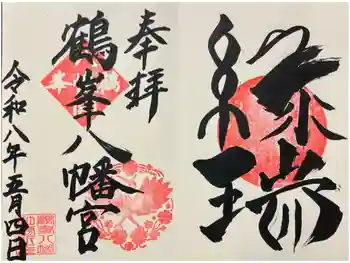 奉拝
鶴峯八幡宮
令和八年五月四日
瑞